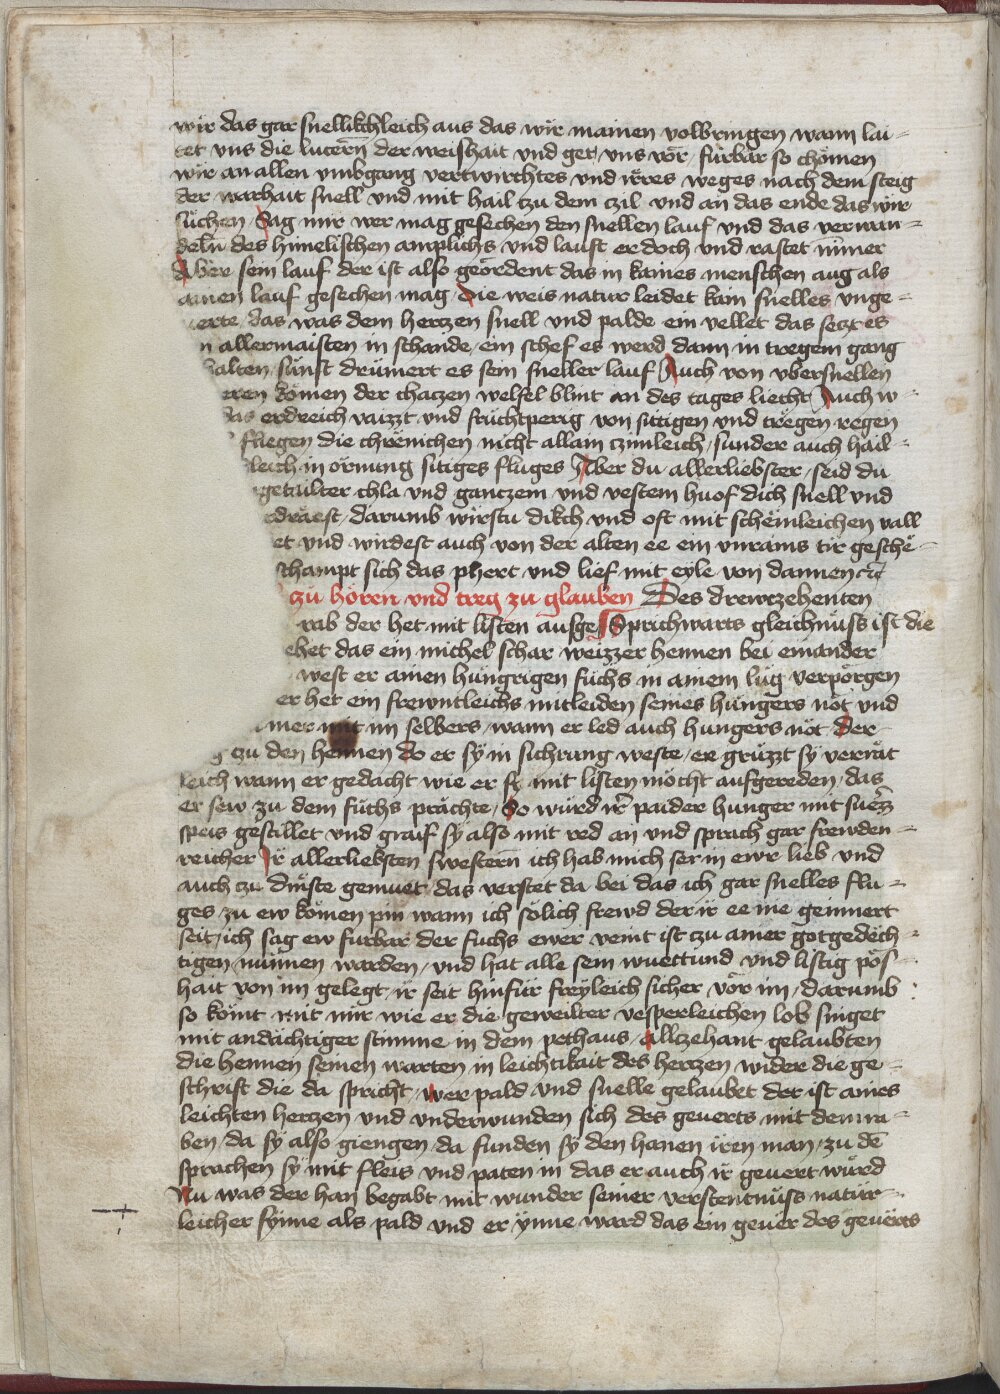 wir das gar snellikchleich aus das wir mainen volbringen wann lai-
tet vns die lucern der weishait vnd get vns vor / furbar so chömen
wir an allen vmbgang vertwirchtes vnd irres weges nach dem steig
der warhait snell vnd mit hail tzu dem czil vnd an das ende das wir
süchen Sag mir wer mag gesechen den snellen lauf vnd das verwan-
deln des himelischen amplichs vnd lauft er doch vnd rastet nimer
Aber sein lauf der ist also geordent das in kaines menschen aug als
ainen lauf gesechen mag Die weis natur leidet kain snelles vnge-
uerte das was dem hertzen snell vnd palde ein vellet das setzt es
n allermaisten in schande / ein schef es werd dann in tregem gang
halten sünst drümert es sein sneller lauf Auch von vbersnellen
eren kömen der chatzen welfel blint an des tages liecht Auch w-
das erdreich vaizzt vnd früchtperig von sittigen vnd trëgen regen
fliegen die chrënichen nicht allain czimleich / sunder auch hail-
leich in ornung sitiges fluges Aber du allerliebster / seid du
getailter chla vnd gantzem vnd vestem huof dich snell vnd
drãest / darumb wirstu dikch vnd oft mit schëmleichen vall
et vnd wirdest auch von der alten ee ein vnrains tir geschë-
schampt sich das phert vnd lief mit eyle von dannen
zü hören vnd treg zu glauben Des drewzehenten
rab der het mit listen aufge Sprichwarts gleichnüss ist die
ehet das ein michel schar weizzer hennen bei einander
west er ainen hungrigen füchs in ainem lug verporgen
er het ein frewntleichs mitleiden seines hüngers not vnd
mer mit im selbers / wann er led auch hungers not Der
g tzu den hennen do er sy in sichrung weste / er grüzzt sy verrät
leich wann er gedacht wie er sy mit listen möcht aufgereden / das
er sew zu dem füchs prächte / So würd ir paider hunger mit suezz
speis gestillet vnd graif sy also mit red an vnd sprach gar frewden-
reicher Ir allerliebsten swestern ich hab mich ser in ewr lieb vnd
auch tzu dinste gemuet / das verstet da bei das ich gar snelles flu-
ges zu ew kömen pin wann ich sölich frewd der ir ee nie geinnert
seit / ich sag ew furbar der fuchs ewer veint ist tzu ainer gotgedëch-
tigen nunnen warden / vnd hat alle sein wuettund vnd listig pos-
hait von im gelegt / ir seit hinfür freyleich sicher vor im / darumb
so kömt mit mir wie er die geweilter vesperleichen lob singet
mit andächtiger stimme in dem pethaus / Allzehant gelaubten
die hennen seinen warten in leichtikait des hertzen wider die ge-
schrift die da spricht / wer pald vnd snelle gelaubet der ist aines
leichten hertzen vnd vnderwunden sich des geuerts mit dem ra-
ben / da sy also giengen / da funden sy den hanen iren man / zu dē
sprachen sy mit fleis vnd paten in das er auch ir geuert würd
Nu was der han begabt mit wunder seiner verstentnüss natür-
leicher synne als pald vnd er ynne ward das ein geuer des geuërts